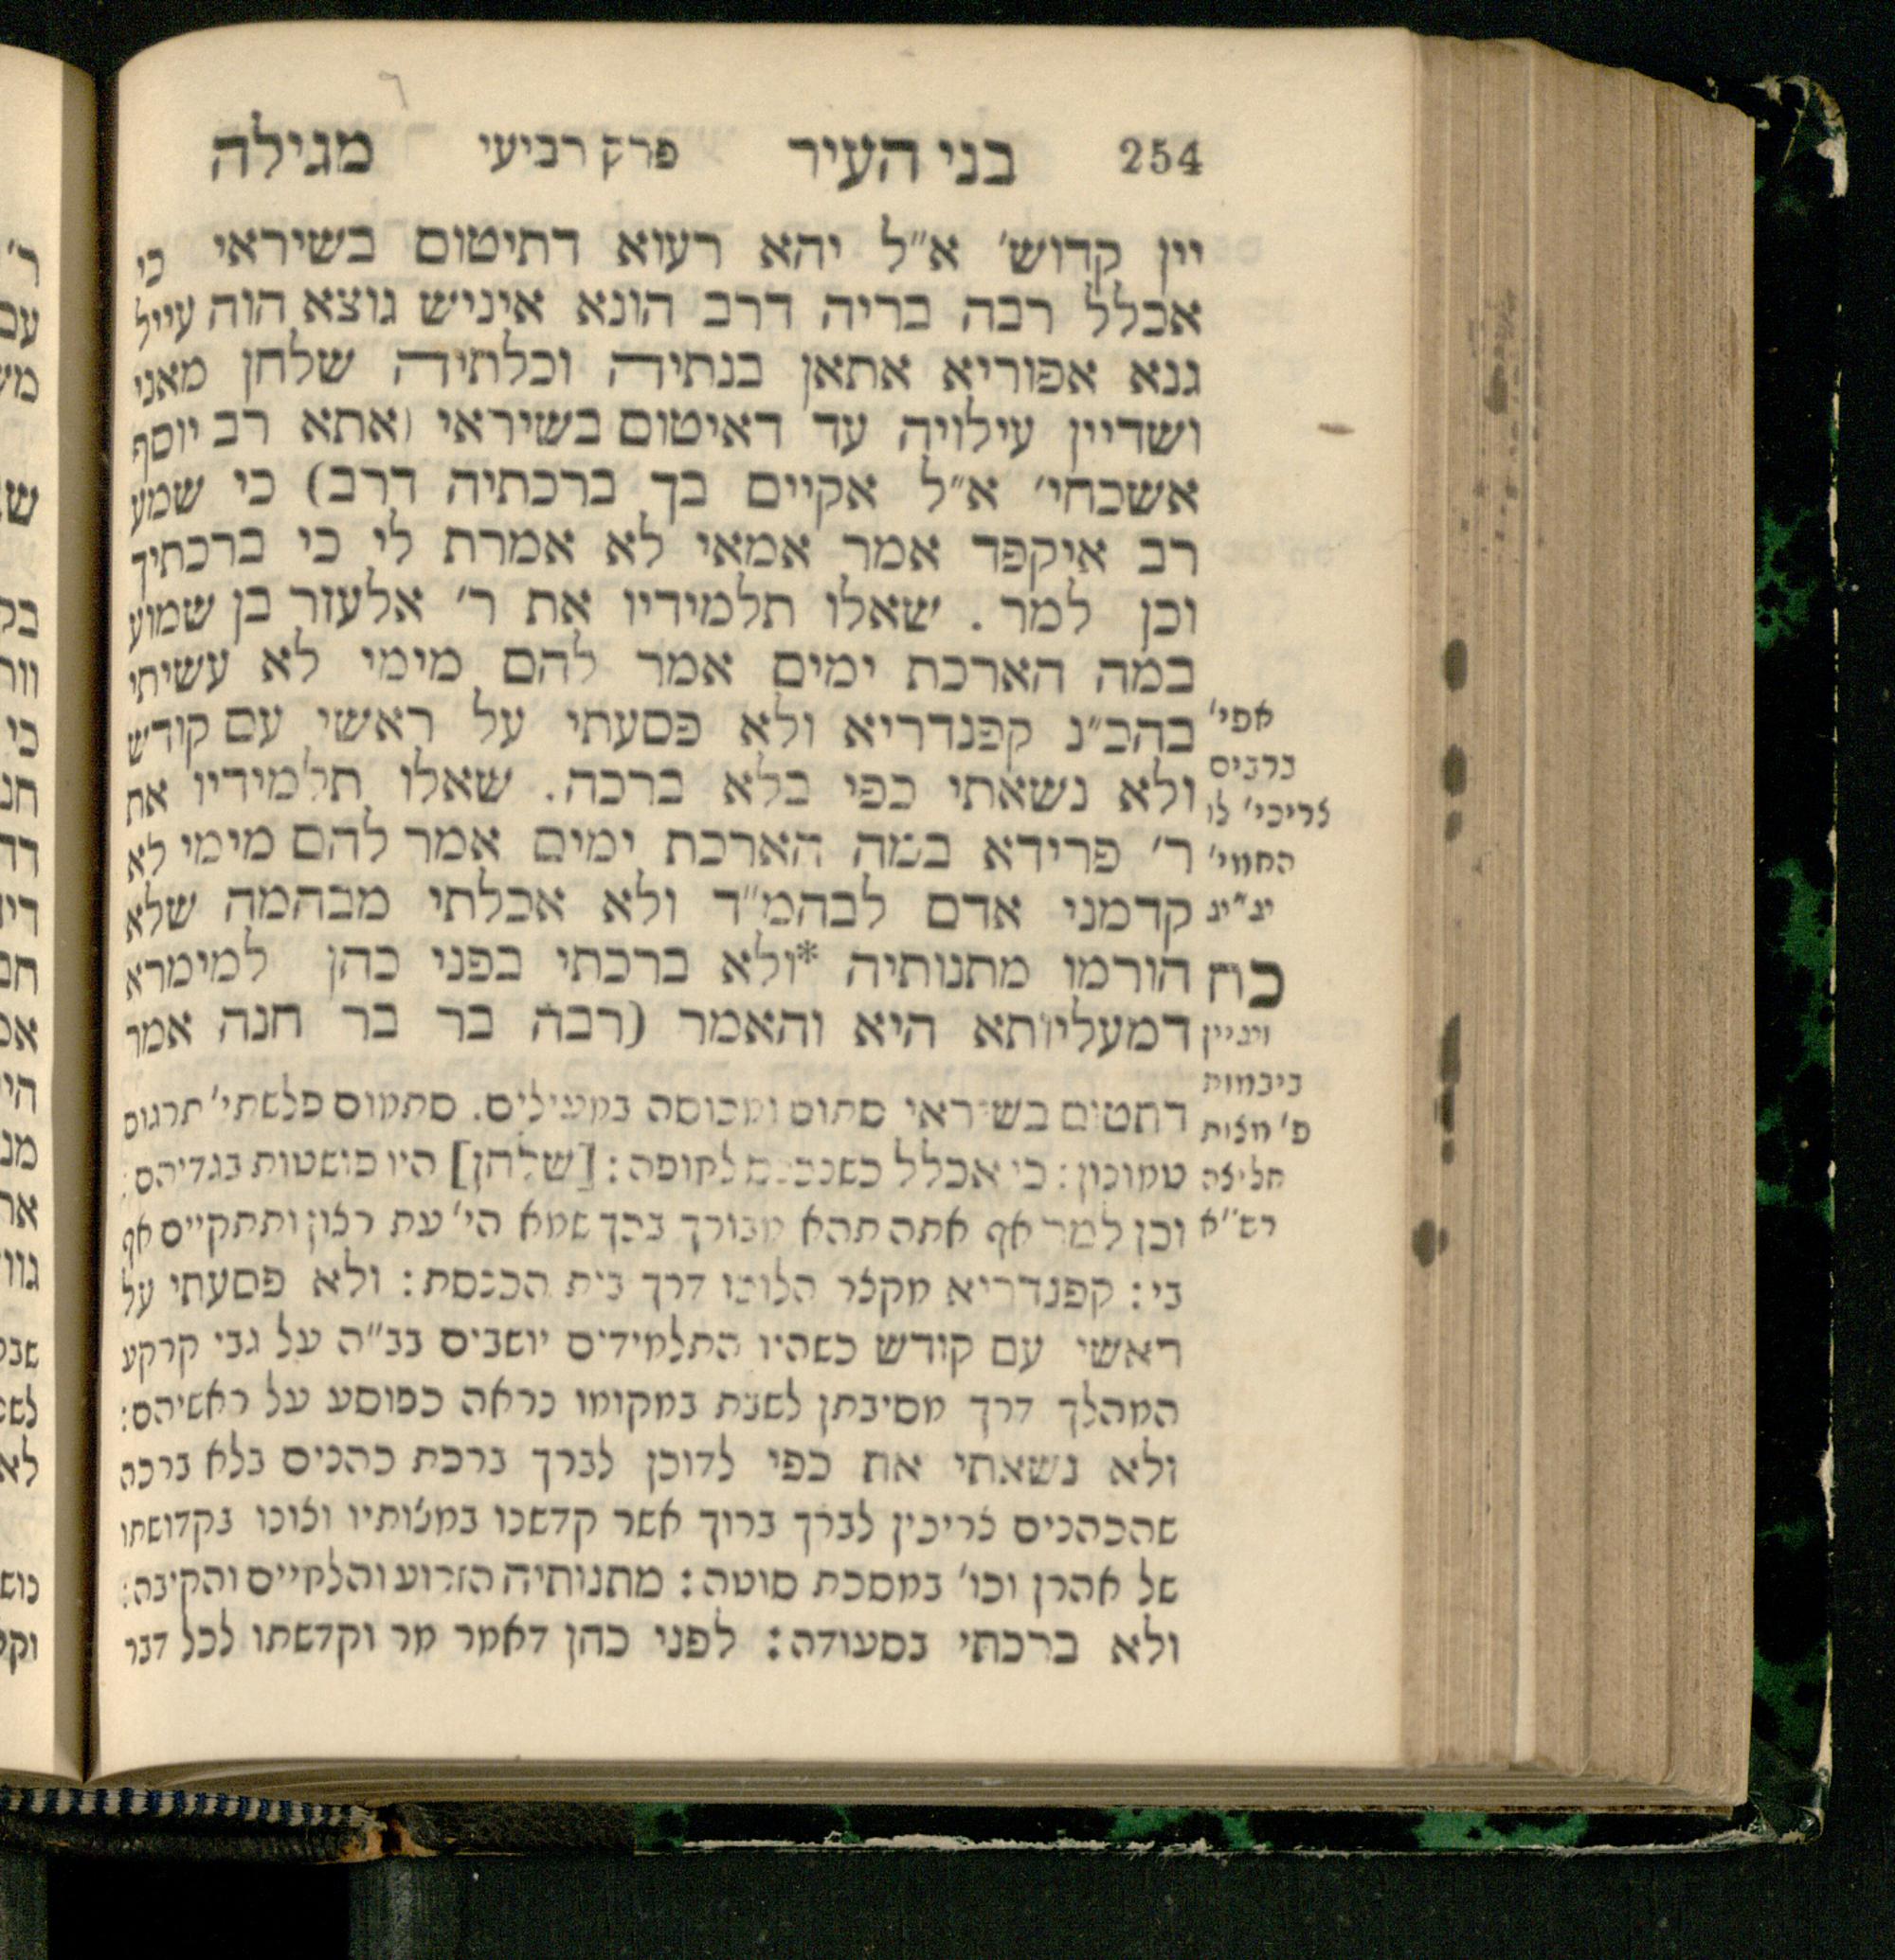 254 בני העיר פרק רביעי מגילה
יין קדוש׳ א״ל יהא רעוא דתיטום בשיראי כי
אכלל רבה בריה דרב הונא איניש גוצא הוה עייל
גנא אפוריא אתאן בנתיה וכלתיה שלחן מאני
ושדיין עילויה עד דאיטום בשיראי (אתא רב יוסף
אשכחי׳ א״ל אקיים בך ברכתיה דרב) כי שמע
רב איקפד אמר אמאי לא אמרת לי כי ברכתיך
וכן למר. שאלו תלמידיו את ר׳ אלעזר בן שמוע
במה הארכת ימים אמר להם מימי לא עשיתי
בהב״נ קפנדריא ולא פסעתי על ראשי עם קודש
ולא נשאתי כפי בלא ברכה. שאלו תלמידיו את
ר׳ פרידא במה הארכת ימים אמר להם מימי לא
קדמני אדם לבהמ״ד ולא אכלתי מבהמה שלא
הורמו מתנותיה *ולא ברכתי בפני כהן למימרא
דמעליותא היא והאמר (רבה בר בר חנה אמר
אפי׳
ברבים
צריכי׳ לו
החמי׳
כח
ועיין
ביבמות
פ׳ מצות
חליצה
רש״א
דחטים בשיראי סתום ומכוסה במעילים. סתמום פלשתי׳ תרגום
טמונין: כי אכלל לקופה: [שלחן] היו פושטות בגדיהם:
וכן למר אף אתה תהא מבורך בכך שמא הי׳ עת רצון ותתקיים אף
בי: קפנדריא מקצר הלוכו דרך בית הכנסת: ולא פסעתי על
ראשי עם קודש כשהיו התלמידים יושבים בב״ה על גבי קרקע
המהלך דרך מסיבתן לשבת במקומו נראה כפוסע על ראשיהם:
ולא נשאתי את כפי לדוכן לברך ברכת כהנים בלא ברכה
שהכהנים צריכין לברך ברוך אשר קדשנו במצותיו וצונו בקדושתו
של אהרן וכו׳ במסכת סוטה: מתנותיה הזרוע והלחיים והקיבה:
ולא ברכתי בסעודה: לפני כהן דאמר מר וקדשתו לכל דבר